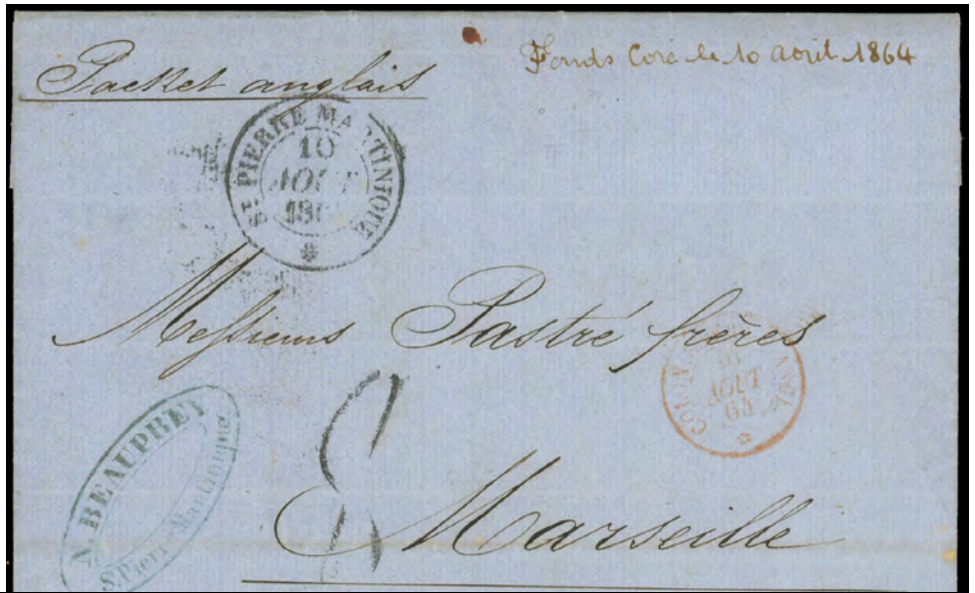 Packet anglais
Fonds Coré le 10 août 1864
ST PIERRE MARTINIQUE
10
AOUT
186
Messieurs Pastré frères
10
AOUT
64
8
N. BEAUPREY
St. Pierre Martinique
Marseille